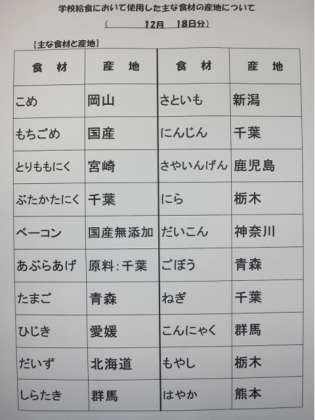 学校給食において使用した主な食材の産地について
（　12月　18日分）
［主な食材と産地］
食　材　産　地　食　材　産　地
こめ　岡山　さといも　新潟
もちごめ　国産　にんじん　千葉
とりももにく　宮崎　さやいんげん　鹿児島
ぶたかたにく　千葉　にら　栃木
ベーコン　国産無添加　だいこん　神奈川
あぶらあげ　原料：千葉　ごぼう　青森
たまご　青森　ねぎ　千葉
ひじき　愛媛　こんにゃく　群馬
だいず　北海道　もやし　栃木
しらたき　群馬　はやか　熊本